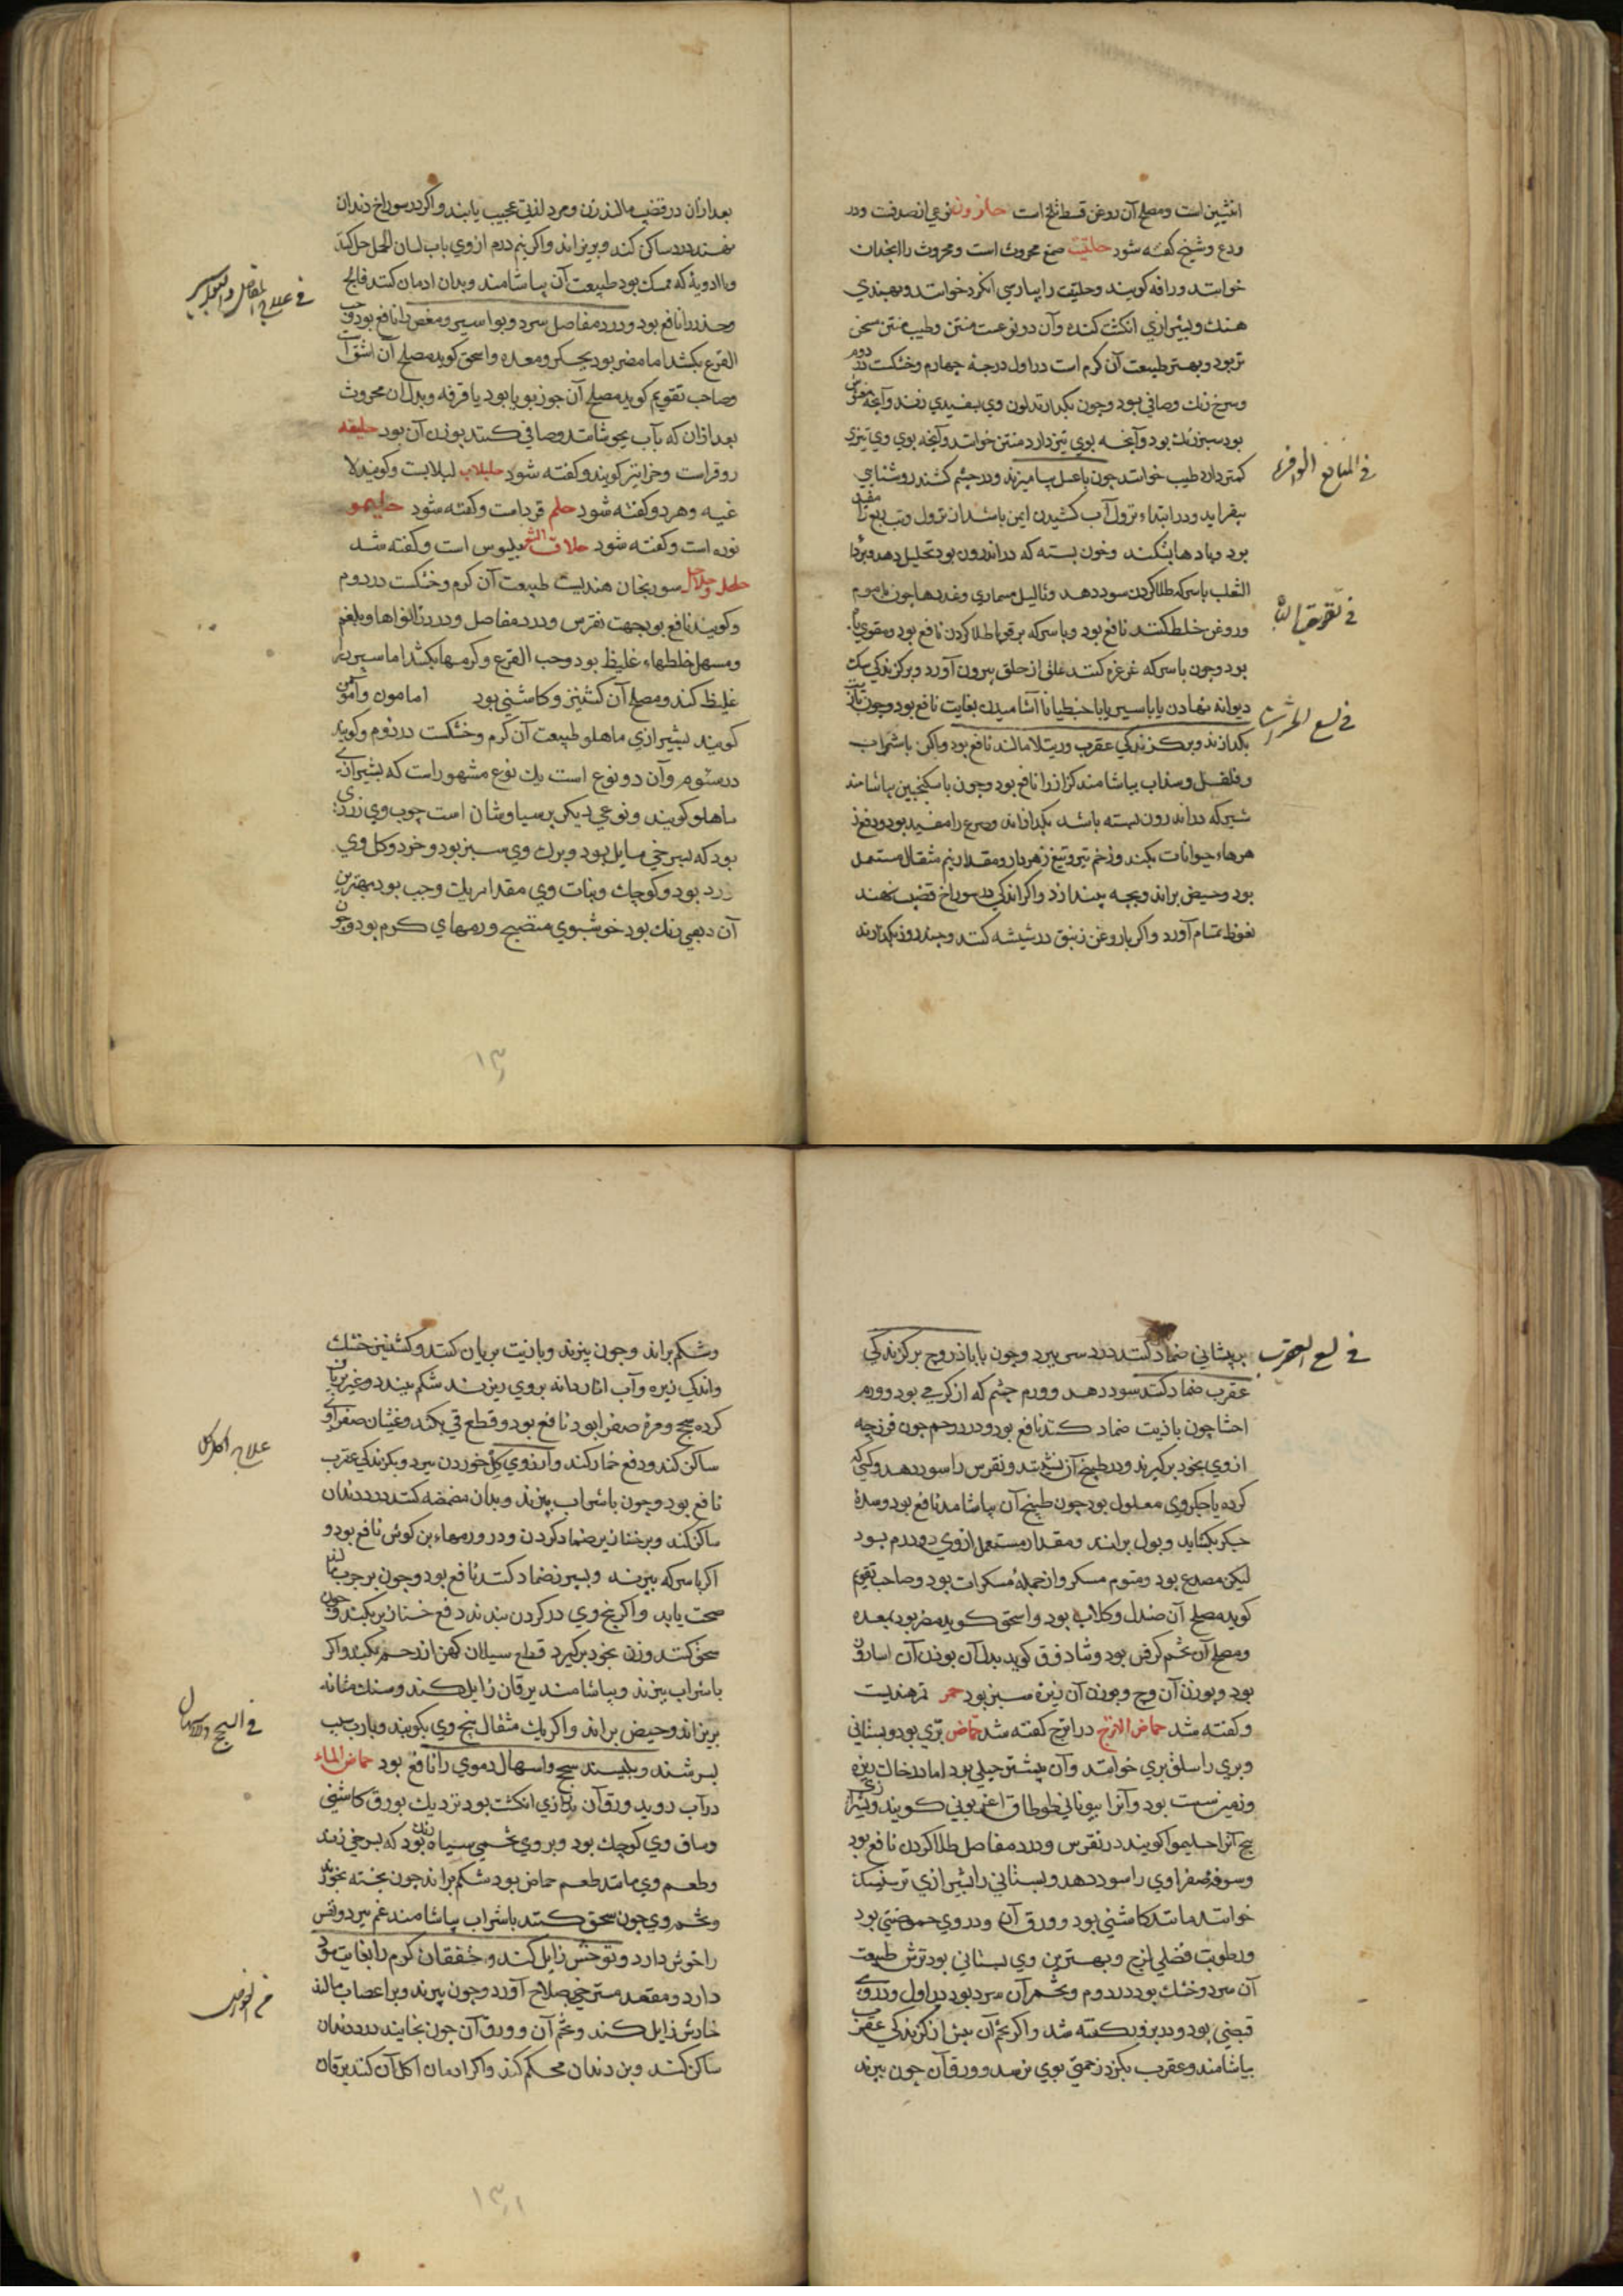 انثیین است ومصلح آن روغن قسط تلخ است حلزون نوعی از صدفست ودر
ودع وشیخ کفته شود حلتیت صمغ محروث است ومحروث را انجدان
خوانند ورافه کویند وحلتیت را بپارسی انکزد خوانند وبهندی
هنك وبشیرازی انکشت کنده وآن دو نوعست منتن وطیب منتن سخن
تر بود وبهتر طبیعت آن کرم است در اول درجهٔ چهارم وخشکست در دوم
وسرخ رنك وصافی بود وچون بکدازند لون وی بسفیدی زند وآنچه
بود سبز رنك بود وآنچه بوی تیز دارد منتن خوانند وآنچه بوی وی تیزی
کمتر دارد طیب خوانند چون باعسل بیامیزند ودر چشم کشند روشنایی
بیفزاید ودر ابتداء نزول آب کشیدن ایمن باشد از نزول وتب ربع را مفید
بود وبادها بشکند وخون بسته که در اندرون بود تحلیل دهد وبر داء
الثعلب باسرکه طلا کردن سود دهد وثالیل مسماری وغددها چون با موم
وروغن خلط کنند نافع بود وباسرکه بر قوبا طلا کردن نافع بود ومقوی باه
بود وچون باسرکه غرغره کنند علق از حلق بیرون آورد وبر کزیدکی سك
دیوانه نهادن یا باسیر یا باجنطیانا آشامیدن بغایت نافع بود وچون بازیت
بکدازند وبر کزیدکی عقرب ورتیلا مالند نافع بود واکر باشراب
وفلفل وسداب بیاشامند کزاز را نافع بود وچون باسکنجبین بیاشامند
شیر که در اندرون بسته باشد بکدازاند وصرع را مفید بود ودفع
هرهاء حیوانات بکند وزخم تیر وتیغ زهردار ومقدار نیم مثقال مستعمل
بود وحیض براند وبچه بیندازد واکر اندکی در سوراخ قضیب نهند
نعوظ تمام آورد واکر با روغن زنبق در شیشه کنند وچند روز بکذارند
فی المنافع الوافره
فی تقویة الباه
فی لسع الحشرات
بعد از آن در قضیب مالند زن ومرد لذتی عجیب یابند واکر در سوراخ دندان
نهند درد ساکن کند وبریزاند واکر نیم درم از وی باب لسان الحمل حل کنند
وباادویهٔ که ممسك بود طبیعت آن بیاشامند وبدان ادمان کنند فالج
وخدر را نافع بود ودرد مفاصل سرد وبواسیر ومغص را نافع بود وحب
القرع بکشد اما مضر بود بجکر ومعده واسحق کوید مصلح آن اشق است
وصاحب تقویم کوید مصلح آن جوز بویا بود یا قرفه وبدل آن محروث
بعد از آن که بآب بجوشانند وصافی کنند بوزن آن بود حلیفه
روقراست وحزا نیز کویند وکفته شود حلبلاب لبلابست وکویند لا
غیه وهر دو کفته شود حلم قردامت وکفته شود حلیمو
نوره است وکفته شود حلاق الشعر بلبوس است وکفته شد
حلحل وحلاحل سورنجان هندیست طبیعت آن کرم وخشکست در دوم
وکویند نافع بود جهت نقرس ودرد مفاصل ودرد زانواها وبلغم
ومسهل خلطهاء غلیظ بود وحب القرع وکرمها بکشد اما سپرز را
غلیظ کند ومصلح آن کشنیز وکاشنی بود امامون وآمومن
کویند بشیرازی ماهلو طبیعت آن کرم وخشکست در دوم وکویند
در سئوم وآن دو نوع است یك نوع مشهور است که بشیرازی
ماهلو کویند ونوعی دیکر برسیاوشان است چوب وی زرد
بود که بسرخی مایل بود وبرك وی سبز بود وخرد وکل وی
زرد بود وکوچك ونبات وی مقدار یك وجب بود بهترین
آن ذهبی رنك بود خوشبوی منضج ورمهای کرم بود وچون
فی علاج المفاصل والبواسیر
۱۳۰
بر پیشانی ضماد کنند درد سر ببرد وچون با باذروج بر کزیدکی
عقرب ضماد کنند سود دهد وورم چشم که از کرمی بود وورم
احشا چون بازیت ضماد کنند نافع بود ودرد رحم چون فرزجه
از وی بخود برکیرند ودر طبیخ آن نشینند ونقرس را سود دهد وکسی که
کرده یا جکر وی معلول بود چون طبیخ آن بیاشامد نافع بود وسدهٔ
جکر بکشاید وبول براند ومقدار مستعمل از وی دو درم بود
لیکن مصدع بود ومنوم مسکر واز جملهٔ مسکرات بود وصاحب تقویم
کوید مصلح آن صندل وکلاب بود واسحق کوید مضر بود بمعده
ومصلح آن تخم کرفس بود وشادوق کوید بدل آن بوزن آن اسارون
بود وبوزن آن وج وبوزن آن زیره سبز بود حمر تمر هندیست
وکفته شد حماض الاترج در اترج کفته شد حماض بری بود وبستانی
وبری را سلق بری خوانند وآن بیشتر جبلی بود اما درخال ریزه
وزمین ست بود وآنرا بیونانی طوطاق اغریونی کویند وشیرازی
بیخ آنرا حلیموا کویند در نقرس ودرد مفاصل طلا کردن نافع بود
وسوفهٔ صفراوی را سود دهد وبستانی را بشیرازی ترشک
خوانند مانند کاشنی بود وورق آن ودر وی حموضتی بود
ورطوبت فضلی لزج وبهترین وی بستانی بود ترش طبیعت
آن سرد وخشك بود در دوم وتخم آن سرد بود در اول ودر وی
قبضی بود ودر بزور کفته شد واکر تخم آن پیش از کزیدکی عقرب
بیاشامند وعقرب بکزد زحمتی بوی نرسد وورق آن چون بپزند
فی لسع العقرب
وشکم براند وچون بپزند وبازیت بریان کنند وکشنیز خشك
واندکی زیره وآب انار دانه بر وی ریزند شکم ببندد وغیر بریان
کرده سحج ومرهٔ صفرا بود نافع بود وقطع قی بکند وغثیان صفراوی
ساکن کند ودفع خمار کند وآرزوی کل خوردن ببرد وبکزیدکی عقرب
نافع بود وچون باشراب بپزند وبدان مضمضه کنند درد دندان
ساکن کند وبر خنازیر ضماد کردن ودر ورمهاء بن کوش نافع بود و
اکر باسرکه بپزند وبسپرز ضماد کنند نافع بود وچون بر جرب مالند
صحت یابد واکر بیخ وی در کردن بندند دفع خنازیر بکند وچون
سحق کنند وزن بخود برکیرد قطع سیلان کهن از رحم بکند واکر
باشراب بپزند وبیاشامند یرقان زایل کند وسنك مثانه
بریزاند وحیض براند واکر یك مثقال بیخ وی بکوبند وبارب سیب
بسرشند وبلیسند سحج واسهال دموی را نافع بود حماض الماء
در آب روید ورق آن بدرازی انکشت بود نزدیك بورق کاشنی
وساق وی کوچك بود وبر وی تخمی سیاه رنك بود که بسرخی زند
وطعم وی مانند طعم حماض بود شکم براند چون پخته بخورند
وتخم وی چون سحق کنند باشراب بیاشامند غم ببرد ونفس
را خوش دارد وتوحش زایل کند وخفقان کرم را بغایت سود
دارد ومقعد مسترخی بصلاح آورد وچون بپزند وبر اعصاب مالند
خارش زایل کند وتخم آن وورق آن چون بخایند درد دندان
ساکن کند وبن دندان محکم کند واکر ادمان اکل آن کنند یرقان
علاج اکل کل
فی السحج والاسهال
۱۳۱